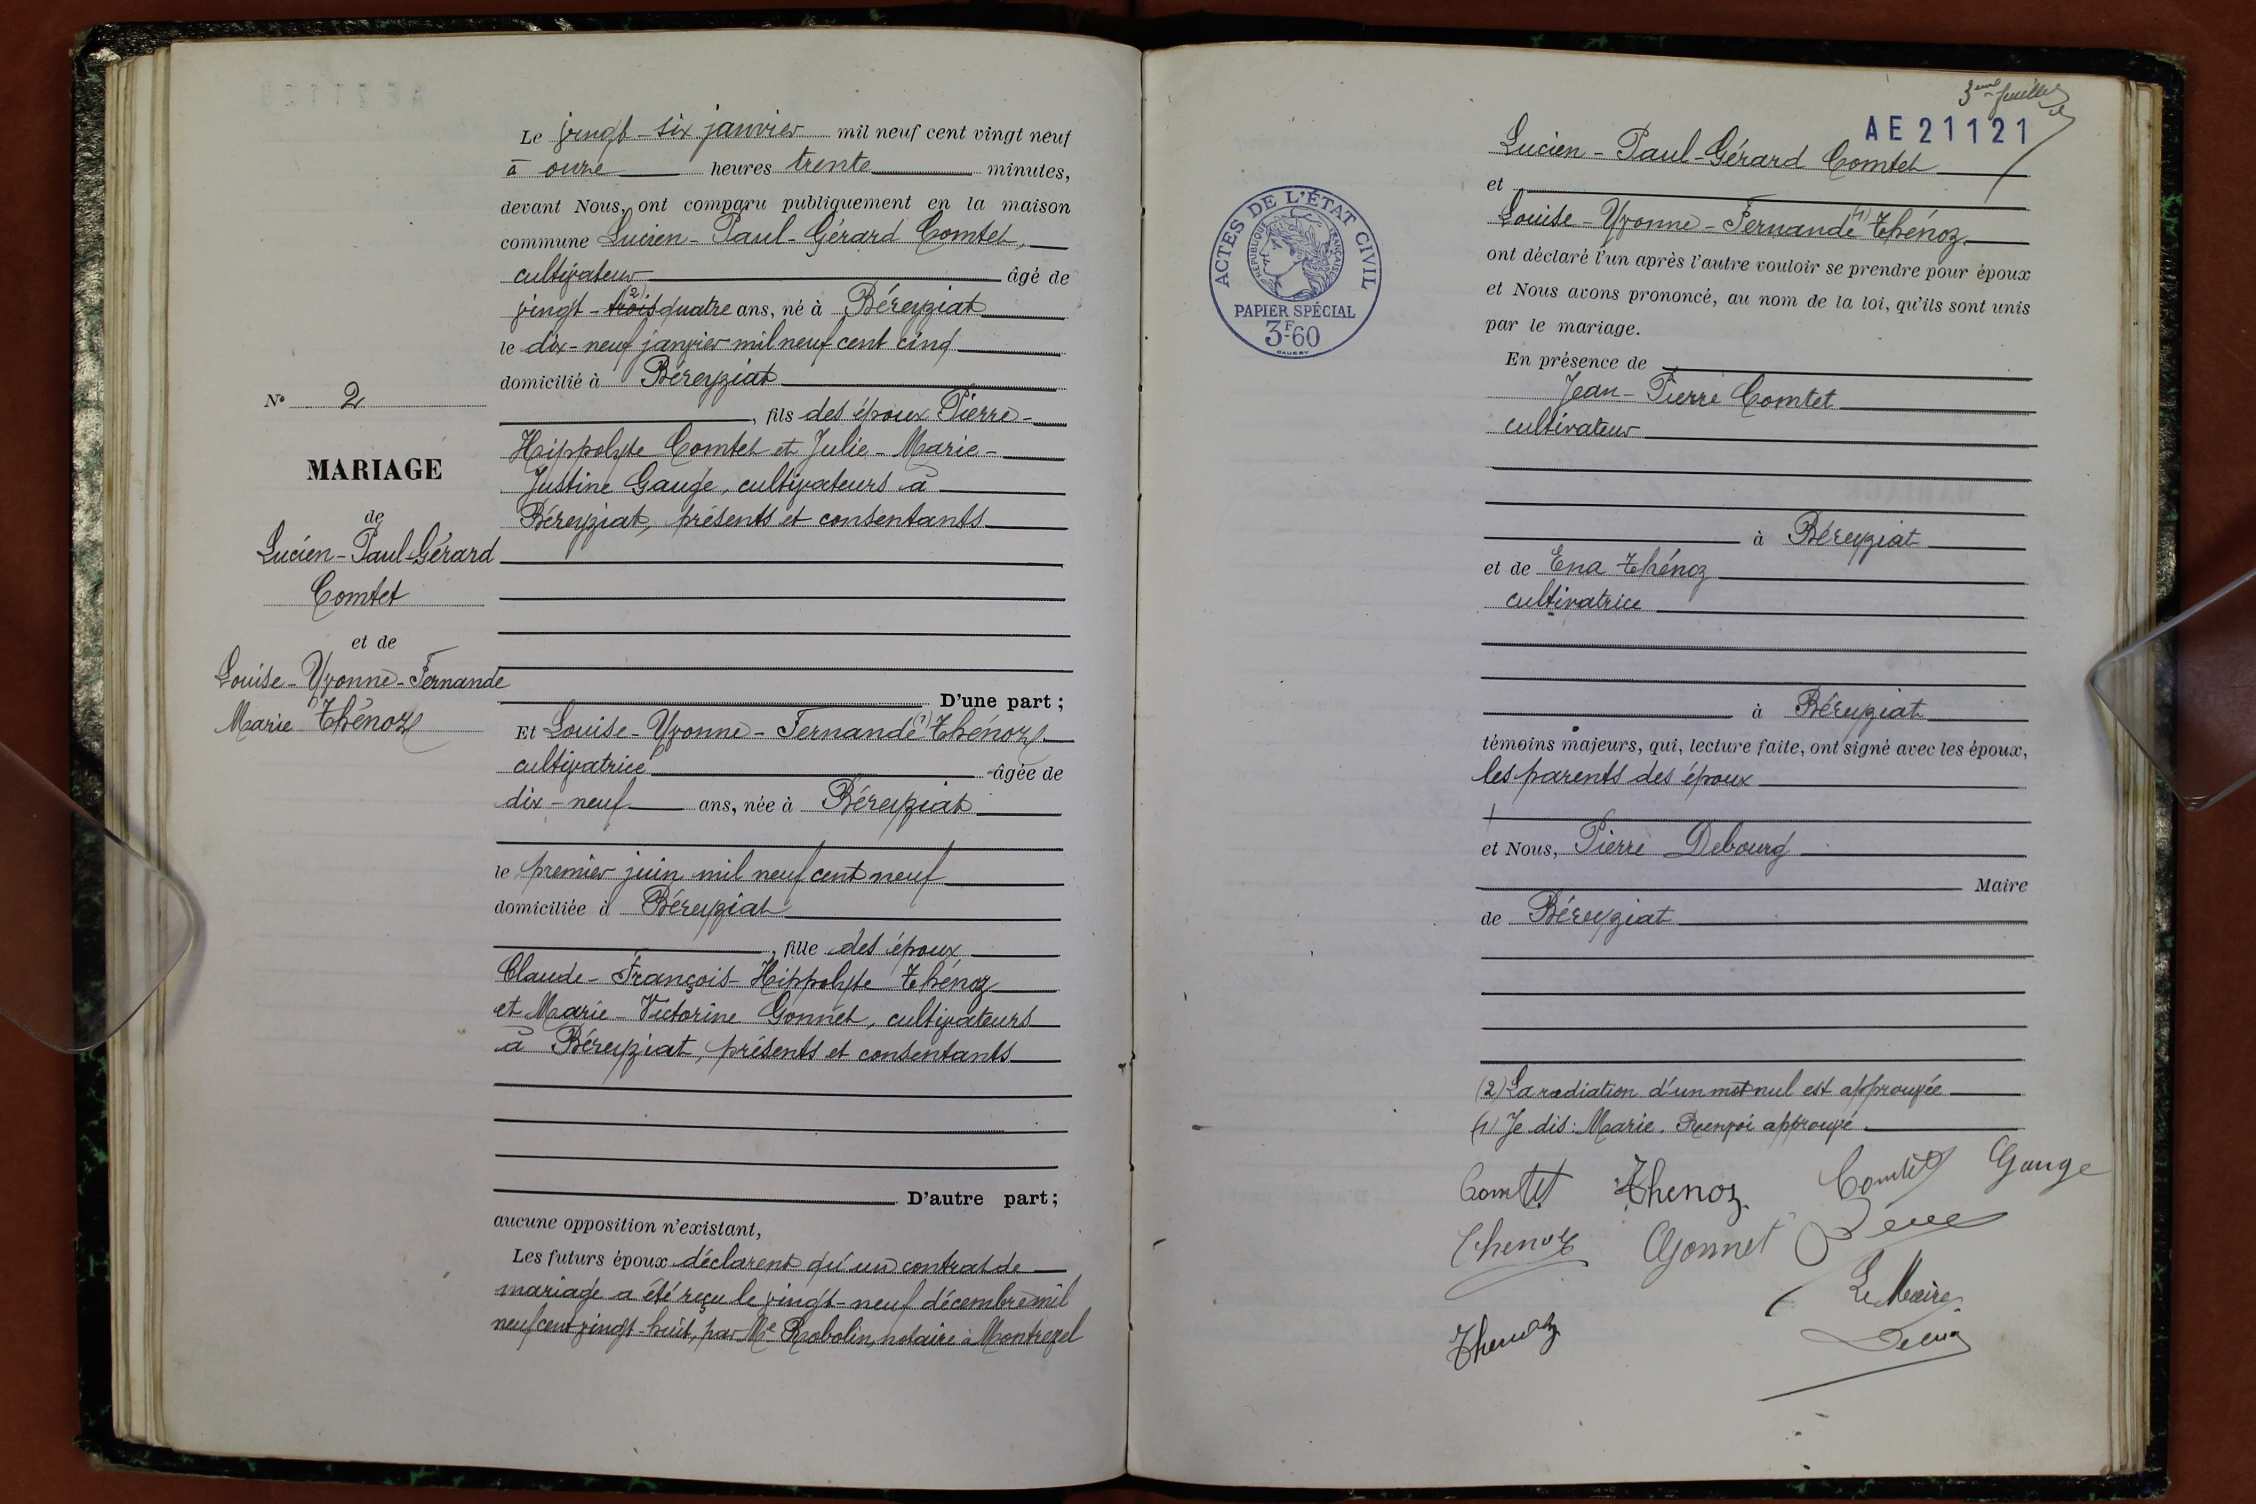 Le vingt-six janvier mil neuf cent vingt neuf
à onze heures trente minutes,
devant Nous, ont comparu publiquement en la maison
commune Lucien-Paul-Gérard Comtet,
cultivateur âgé de
vingt-trois (2) quatre ans, né à Béreyziat
le dix-neuf janvier mil neuf cent cinq
domicilié à Béreyziat
, fils des époux Pierre-
Hippolyte Comtet et Julie-Marie-
Justine Gauge, cultivateurs à
Béreyziat, présents et consentants
D'une part ;
Et Louise-Yvonne-Fernande (1) Thénoz
cultivatrice âgée de
dix-neuf ans, née à Béreyziat
le premier juin mil neuf cent neuf
domiciliée à Béreyziat
, fille des époux
Claude-François-Hippolyte Thénoz
et Marie-Victorine Gonnet, cultivateurs
à Béreyziat, présents et consentants
D'autre part ;
aucune opposition n'existant,
Les futurs époux déclarent qu'un contrat de
mariage a été reçu le vingt-neuf décembre mil
neuf cent vingt-huit, par Me Robolin, notaire à Montrevel
No 2
MARIAGE
de
Lucien-Paul-Gérard
Comtet
et de
Louise-Yvonne-Fernande
Marie Thénoz
3eme feuillet
AE 21121
ACTES DE L'ÉTAT CIVIL
RÉPUBLIQUE FRANÇAISE
PAPIER SPÉCIAL
3F60
Lucien-Paul-Gérard Comtet
et
Louise-Yvonne-Fernande (1) Thénoz
ont déclaré l'un après l'autre vouloir se prendre pour époux
et Nous avons prononcé, au nom de la loi, qu'ils sont unis
par le mariage.
En présence de
Jean-Pierre Comtet
cultivateur
à Béreyziat
et de Ena Thénoz
cultivatrice
à Béreyziat
témoins majeurs, qui, lecture faite, ont signé avec les époux,
les parents des époux
et Nous, Pierre Debourg
Maire
de Béreyziat
(2) La radiation d'un mot nul est approuvée
(1) Je dis: Marie. Renvoi approuvé
Comtet Thenoz Comtet Gauge
Thenoz Gonnet
Le Maire
Thenoz